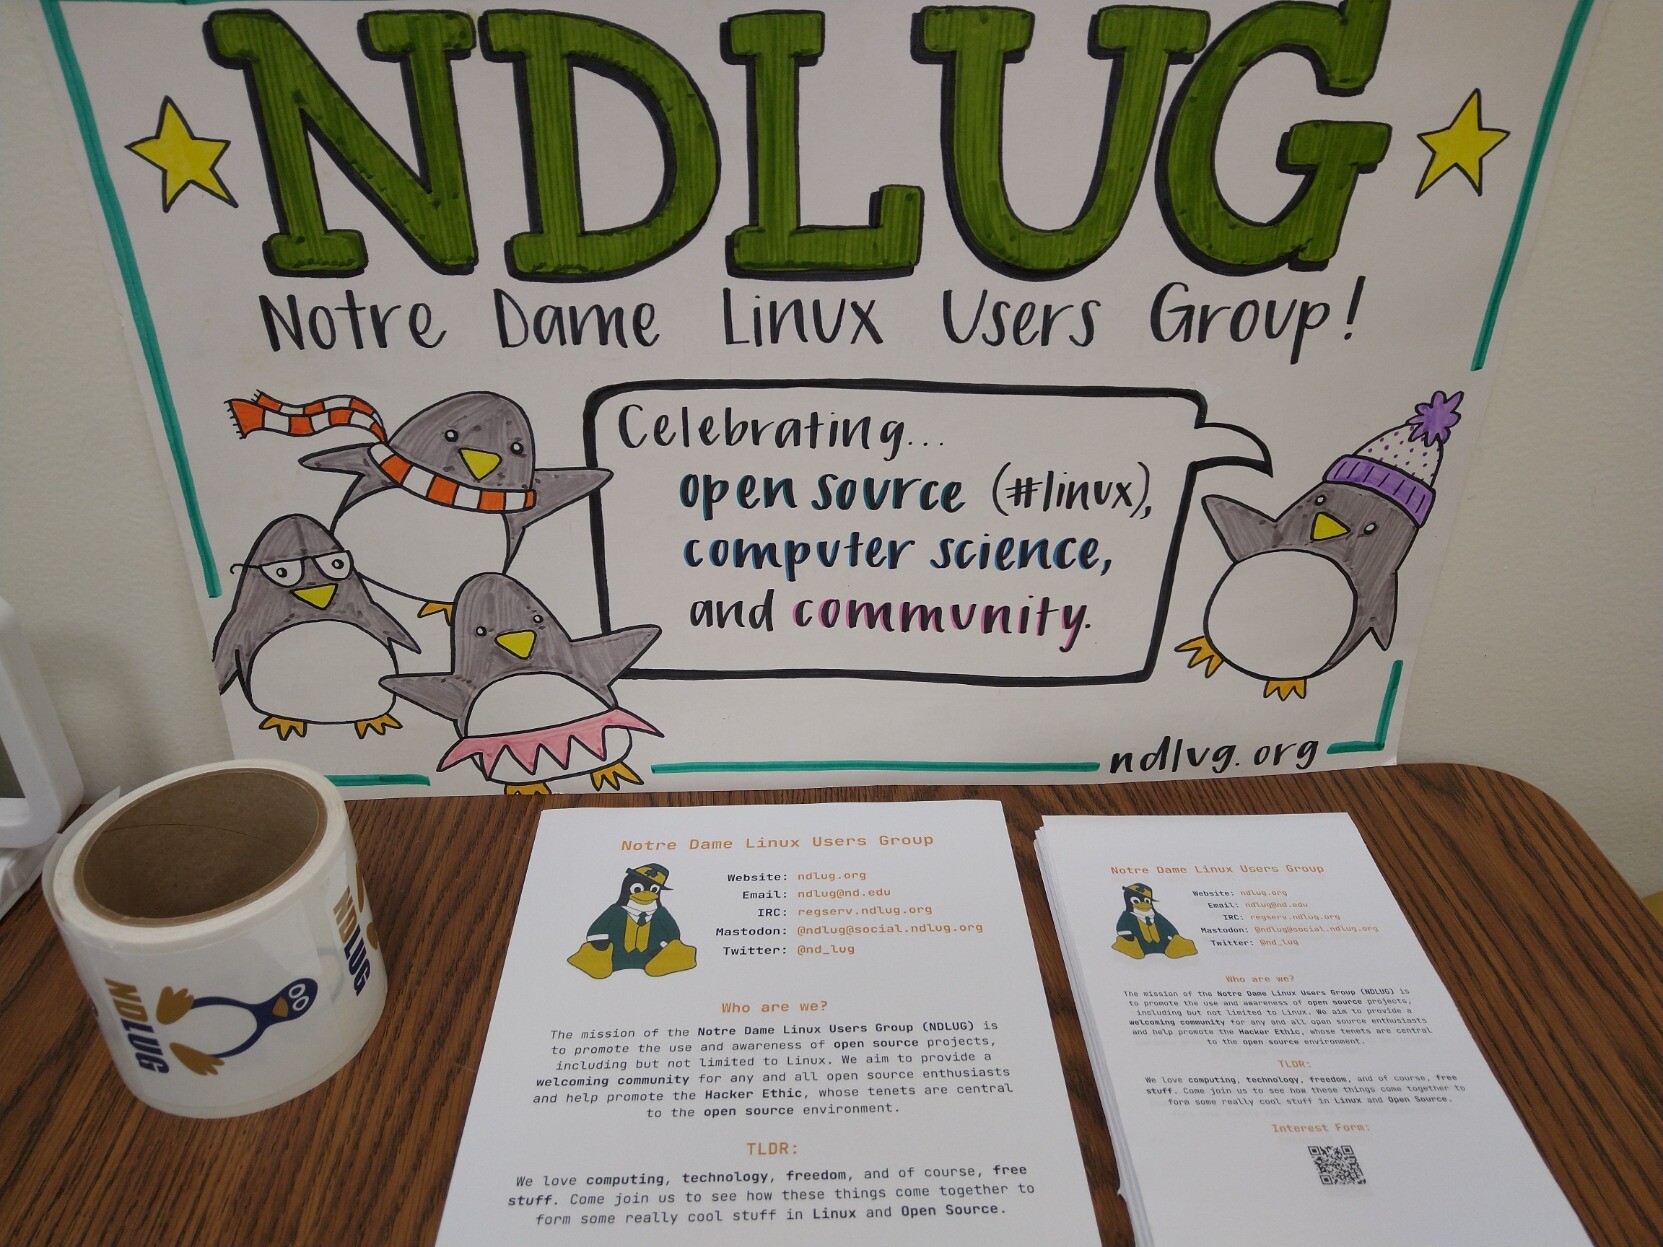 NDLUG
Notre Dame Linux Users Group!
Celebrating...
open source (#linux),
computer science,
and community.
ndlug.org
NDLUG
NDLUG
Notre Dame Linux Users Group
Website: ndlug.org
Email: ndlug@nd.edu
IRC: regserv.ndlug.org
Mastodon: @ndlug@social.ndlug.org
Twitter: @nd_lug
Who are we?
The mission of the Notre Dame Linux Users Group (NDLUG) is
to promote the use and awareness of open source projects,
including but not limited to Linux. We aim to provide a
welcoming community for any and all open source enthusiasts
and help promote the Hacker Ethic, whose tenets are central
to the open source environment.
TLDR:
We love computing, technology, freedom, and of course, free
stuff. Come join us to see how these things come together to
form some really cool stuff in Linux and Open Source.
Notre Dame Linux Users Group
Website: ndlug.org
Email: ndlug@nd.edu
IRC: regserv.ndlug.org
Mastodon: @ndlug@social.ndlug.org
Twitter: @nd_lug
Who are we?
The mission of the Notre Dame Linux Users Group (NDLUG) is
to promote the use and awareness of open source projects,
including but not limited to Linux. We aim to provide a
welcoming community for any and all open source enthusiasts
and help promote the Hacker Ethic, whose tenets are central
to the open source environment.
TLDR:
We love computing, technology, freedom, and of course, free
stuff. Come join us to see how these things come together to
form some really cool stuff in Linux and Open Source.
Interest Form: